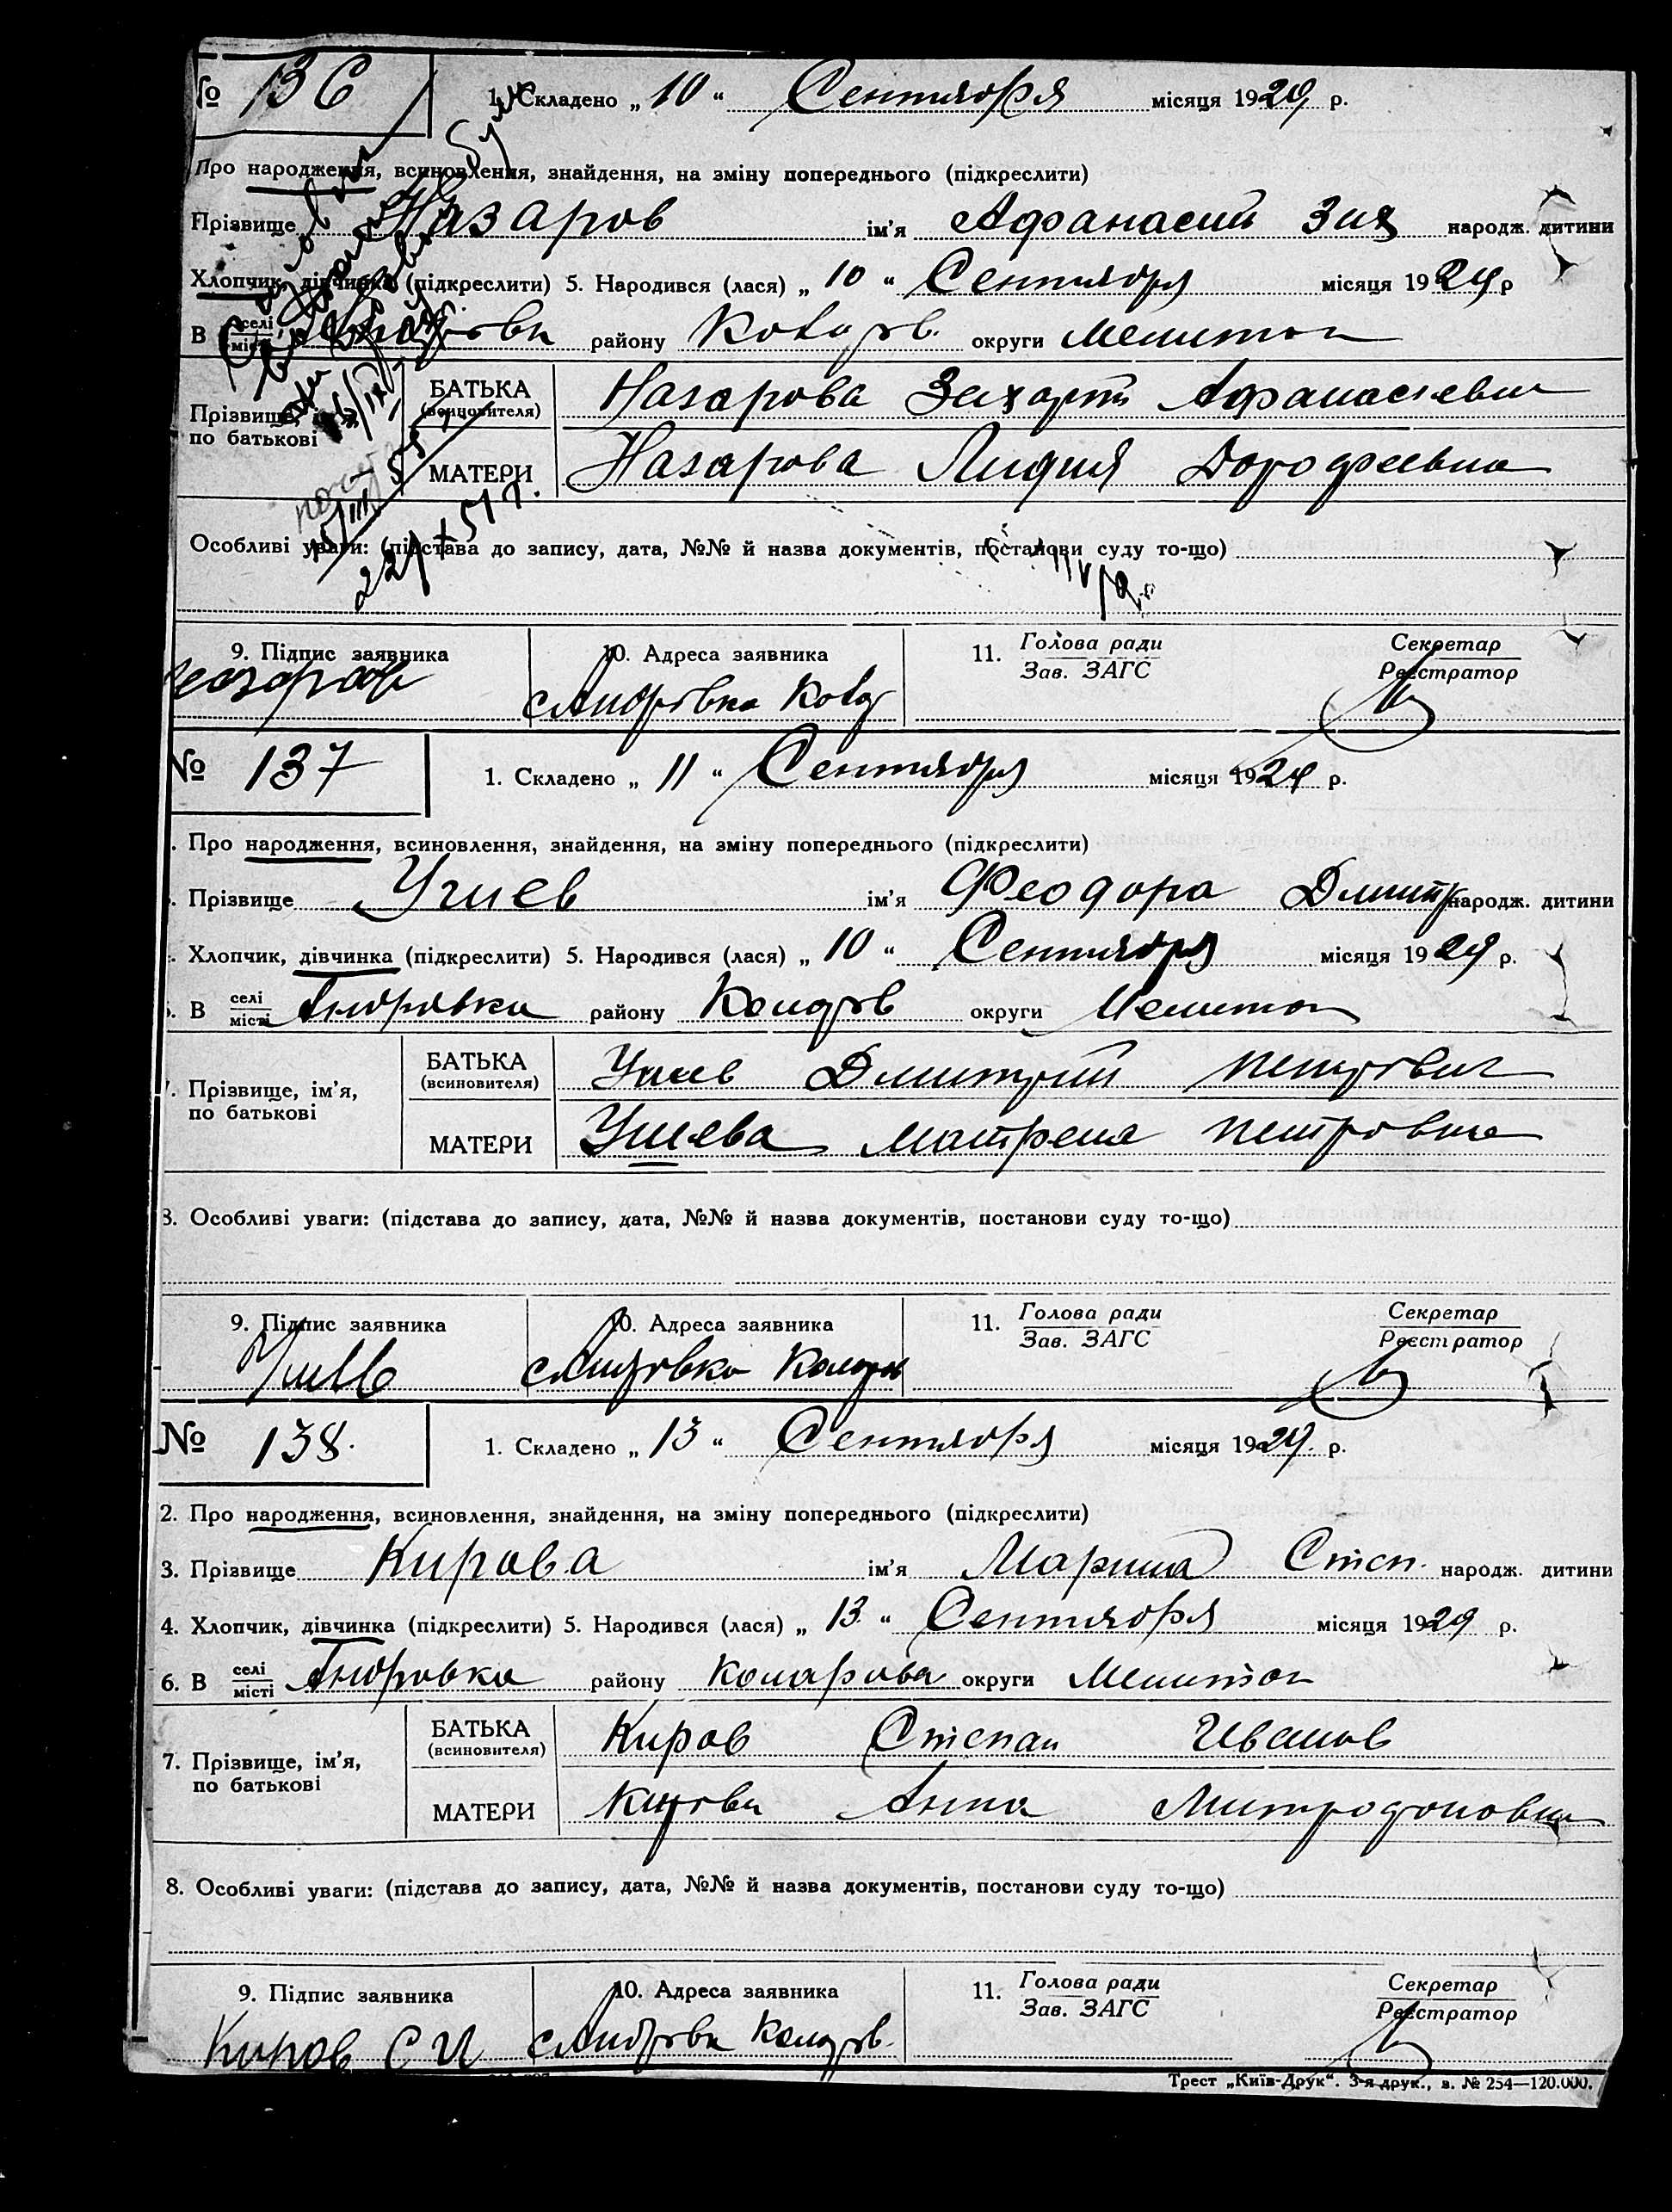 № 136 1. Складено „ 10 “ Сентября місяця 1929 р.
Про народження, всиновлення, знайдення, на зміну попереднього (підкреслити)
Прізвище Назаров ім'я Афанасий Зах народж. дитини
Хлопчик, дівчинка (підкреслити) 5. Народився (лася) „ 10 “ Сентября місяця 1929 р
В селі місті району округи Мелитоп
Прізвище, по батькові БАТЬКА (всиновителя) Назарова Захарий Афанасьевич
МАТЕРИ Назарова Лидия Дорофеевна
Особливі уваги: (підстава до запису, дата, №№ й назва документів, постанови суду то-що)
22/X 51 г.
9. Підпис заявника 10. Адреса заявника 11. Голова ради Зав. ЗАГС Секретар Реєстратор
Назаров с Андровка
№ 137 1. Складено „ 11 “ Сентября місяця 1929 р.
Про народження, всиновлення, знайдення, на зміну попереднього (підкреслити)
Прізвище Учиев ім'я Феодора Дмитр народж. дитини
Хлопчик, дівчинка (підкреслити) 5. Народився (лася) „ 10 “ Сентября місяця 1929 р.
В селі місті Андровка району округи Мелитоп
7. Прізвище, ім'я, по батькові БАТЬКА (всиновителя) Дмитрий Петрович
МАТЕРИ Матрена Петровна
8. Особливі уваги: (підстава до запису, дата, №№ й назва документів, постанови суду то-що)
9. Підпис заявника 10. Адреса заявника 11. Голова ради Зав. ЗАГС Секретар Реєстратор
с Андровка
№ 138. 1. Складено „ 13 “ Сентября місяця 1929. р.
2. Про народження, всиновлення, знайдення, на зміну попереднього (підкреслити)
3. Прізвище Кирова ім'я Марина Степ. народж. дитини
4. Хлопчик, дівчинка (підкреслити) 5. Народився (лася) „ 13 “ Сентября місяця 1929 р.
6. В селі місті Андровка району округи Мелитоп
7. Прізвище, ім'я, по батькові БАТЬКА (всиновителя) Киров Степан Иванов
МАТЕРИ Кирова Анна Митрофоновна
8. Особливі уваги: (підстава до запису, дата, №№ й назва документів, постанови суду то-що)
9. Підпис заявника 10. Адреса заявника 11. Голова ради Зав. ЗАГС Секретар Реєстратор
Киров С И с Андровка
Трест „Київ-Друк“. 3-я друк., в. № 254—120.000.